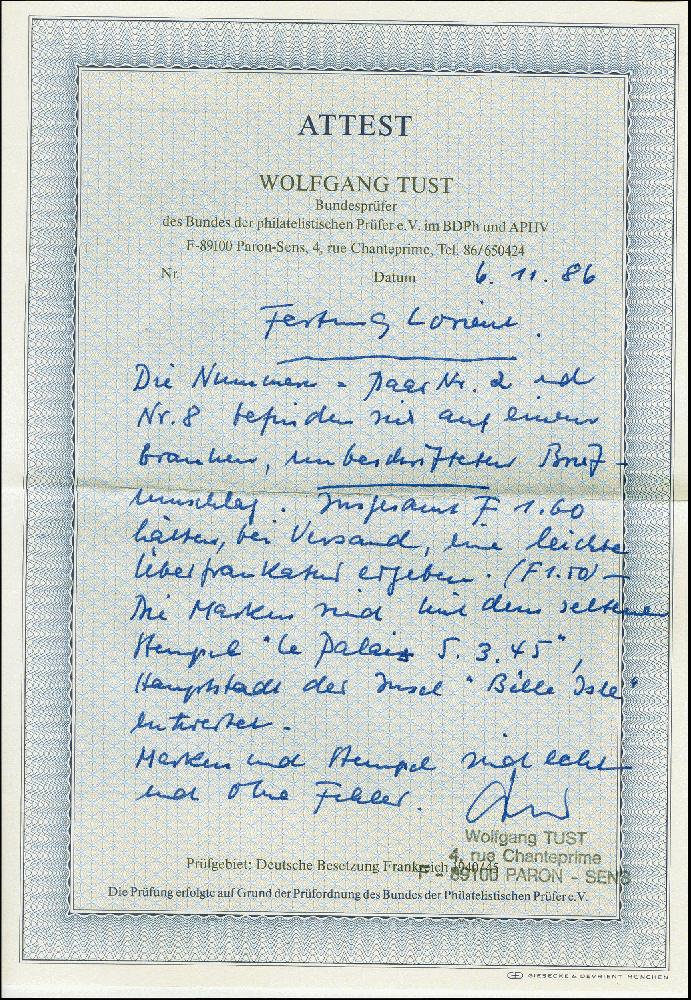 ATTEST
WOLFGANG TUST
Bundesprüfer
des Bundes der philatelistischen Prüfer e.V. im BDPh und APHV
F-89100 Paron-Sens, 4, rue Chanteprime, Tel. 86/650424
Nr. Datum 6. 11. 86
Festung Lorient.
Die Nummern - paar Nr. 2 und
Nr. 8 befinden sich auf einem
braunen, unbeschrifteten Brief-
umschlag. Insgesamt F 1.60
hätten, bei Versand, eine leichte
Überfrankatur ergeben. (F 1.50) —
Die Marken sind mit dem seltenen
Stempel "Le Palais 5. 3. 45",
Hauptstadt der Insel "Belle Isle"
entwertet.
Marken und Stempel sind echt
und ohne Fehler.
Wolfgang TUST
4, rue Chanteprime
F - 89100 PARON - SENS
Prüfgebiet: Deutsche Besetzung Frankreich
Die Prüfung erfolgte auf Grund der Prüfordnung des Bundes der Philatelistischen Prüfer e.V.
GIESECKE & DEVRIENT MÜNCHEN